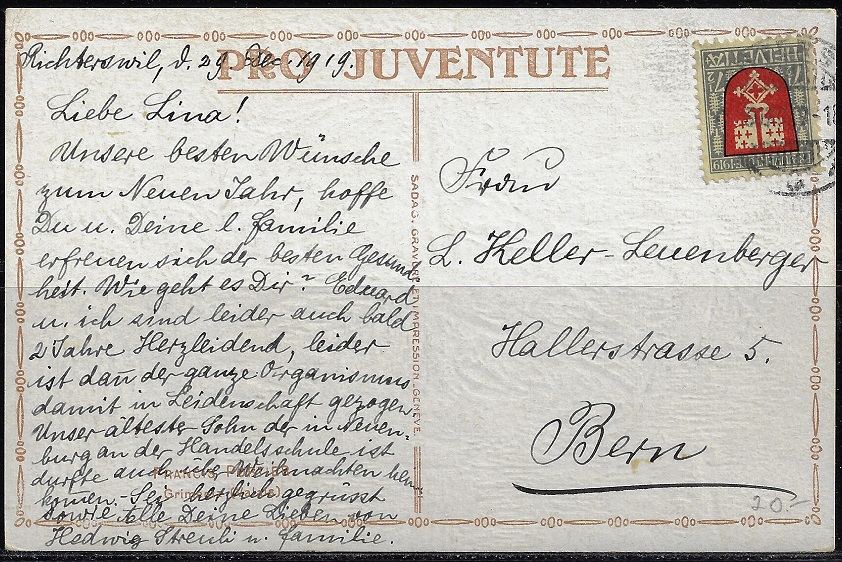 PRO JUVENTUTE
Richterswil, d. 29. Dez. 1919.
Liebe Lina!
Unsere besten Wünsche
zum Neuen Jahr, hoffe
Du u. Deine l. Familie
erfreuen sich der besten Gesund
heit. Wie geht es Dir? Eduard
u. ich sind leider auch bald
2 Jahre Herzleidend, leider
ist dan̄ der ganze Organismus
damit in Leidenschaft gezogen
Unser ältester Sohn der in Neuen-
burg an der Handelsschule ist
durfte auch über Weihnachten
kom̄en. Sei herzlich gegrüsst
sowie alle Deine Lieben von
Hedwig Streuli u. Familie.
FRANCIS
SADAG. GRAVURE ET IMPRESSION. GENÈVE
HELVETIA
7½
1919
Frau
L. Keller-Leuenberger
Hallerstrasse 5.
Bern
20.-